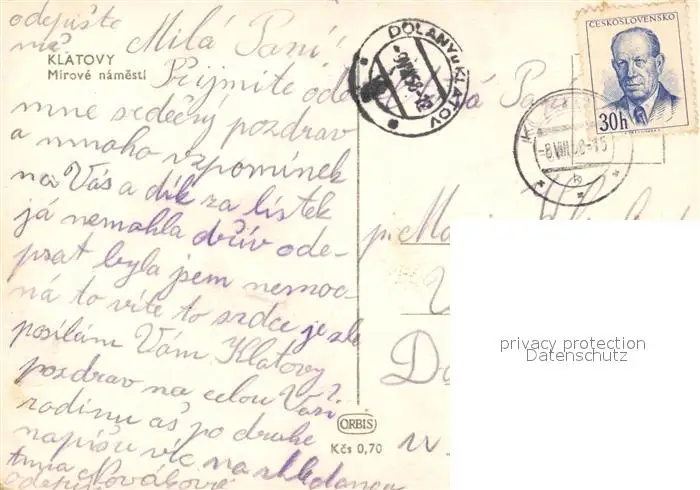 odepište
mě
Milá Paní!
KLATOVY
Mírové náměstí
Přijmite ode
mne srdečný pozdrav
a mnoho vzpomínek
na Vás a dík za lístek
já nemohla dřív ode-
psat byla jsem nemoc-
ná to víte to srdce je zlé
posílám Vám Klatovy
pozdrav na celou Vaší
rodinu až po druhé
napíšu víc na shledanou
Anna Nováková
odepište
DOLANY u KLATOV
ČESKOSLOVENSKO
30h
-8.VIII.58-15
pí. Marie
ORBIS
Kčs 0,70
privacy protection
Datenschutz